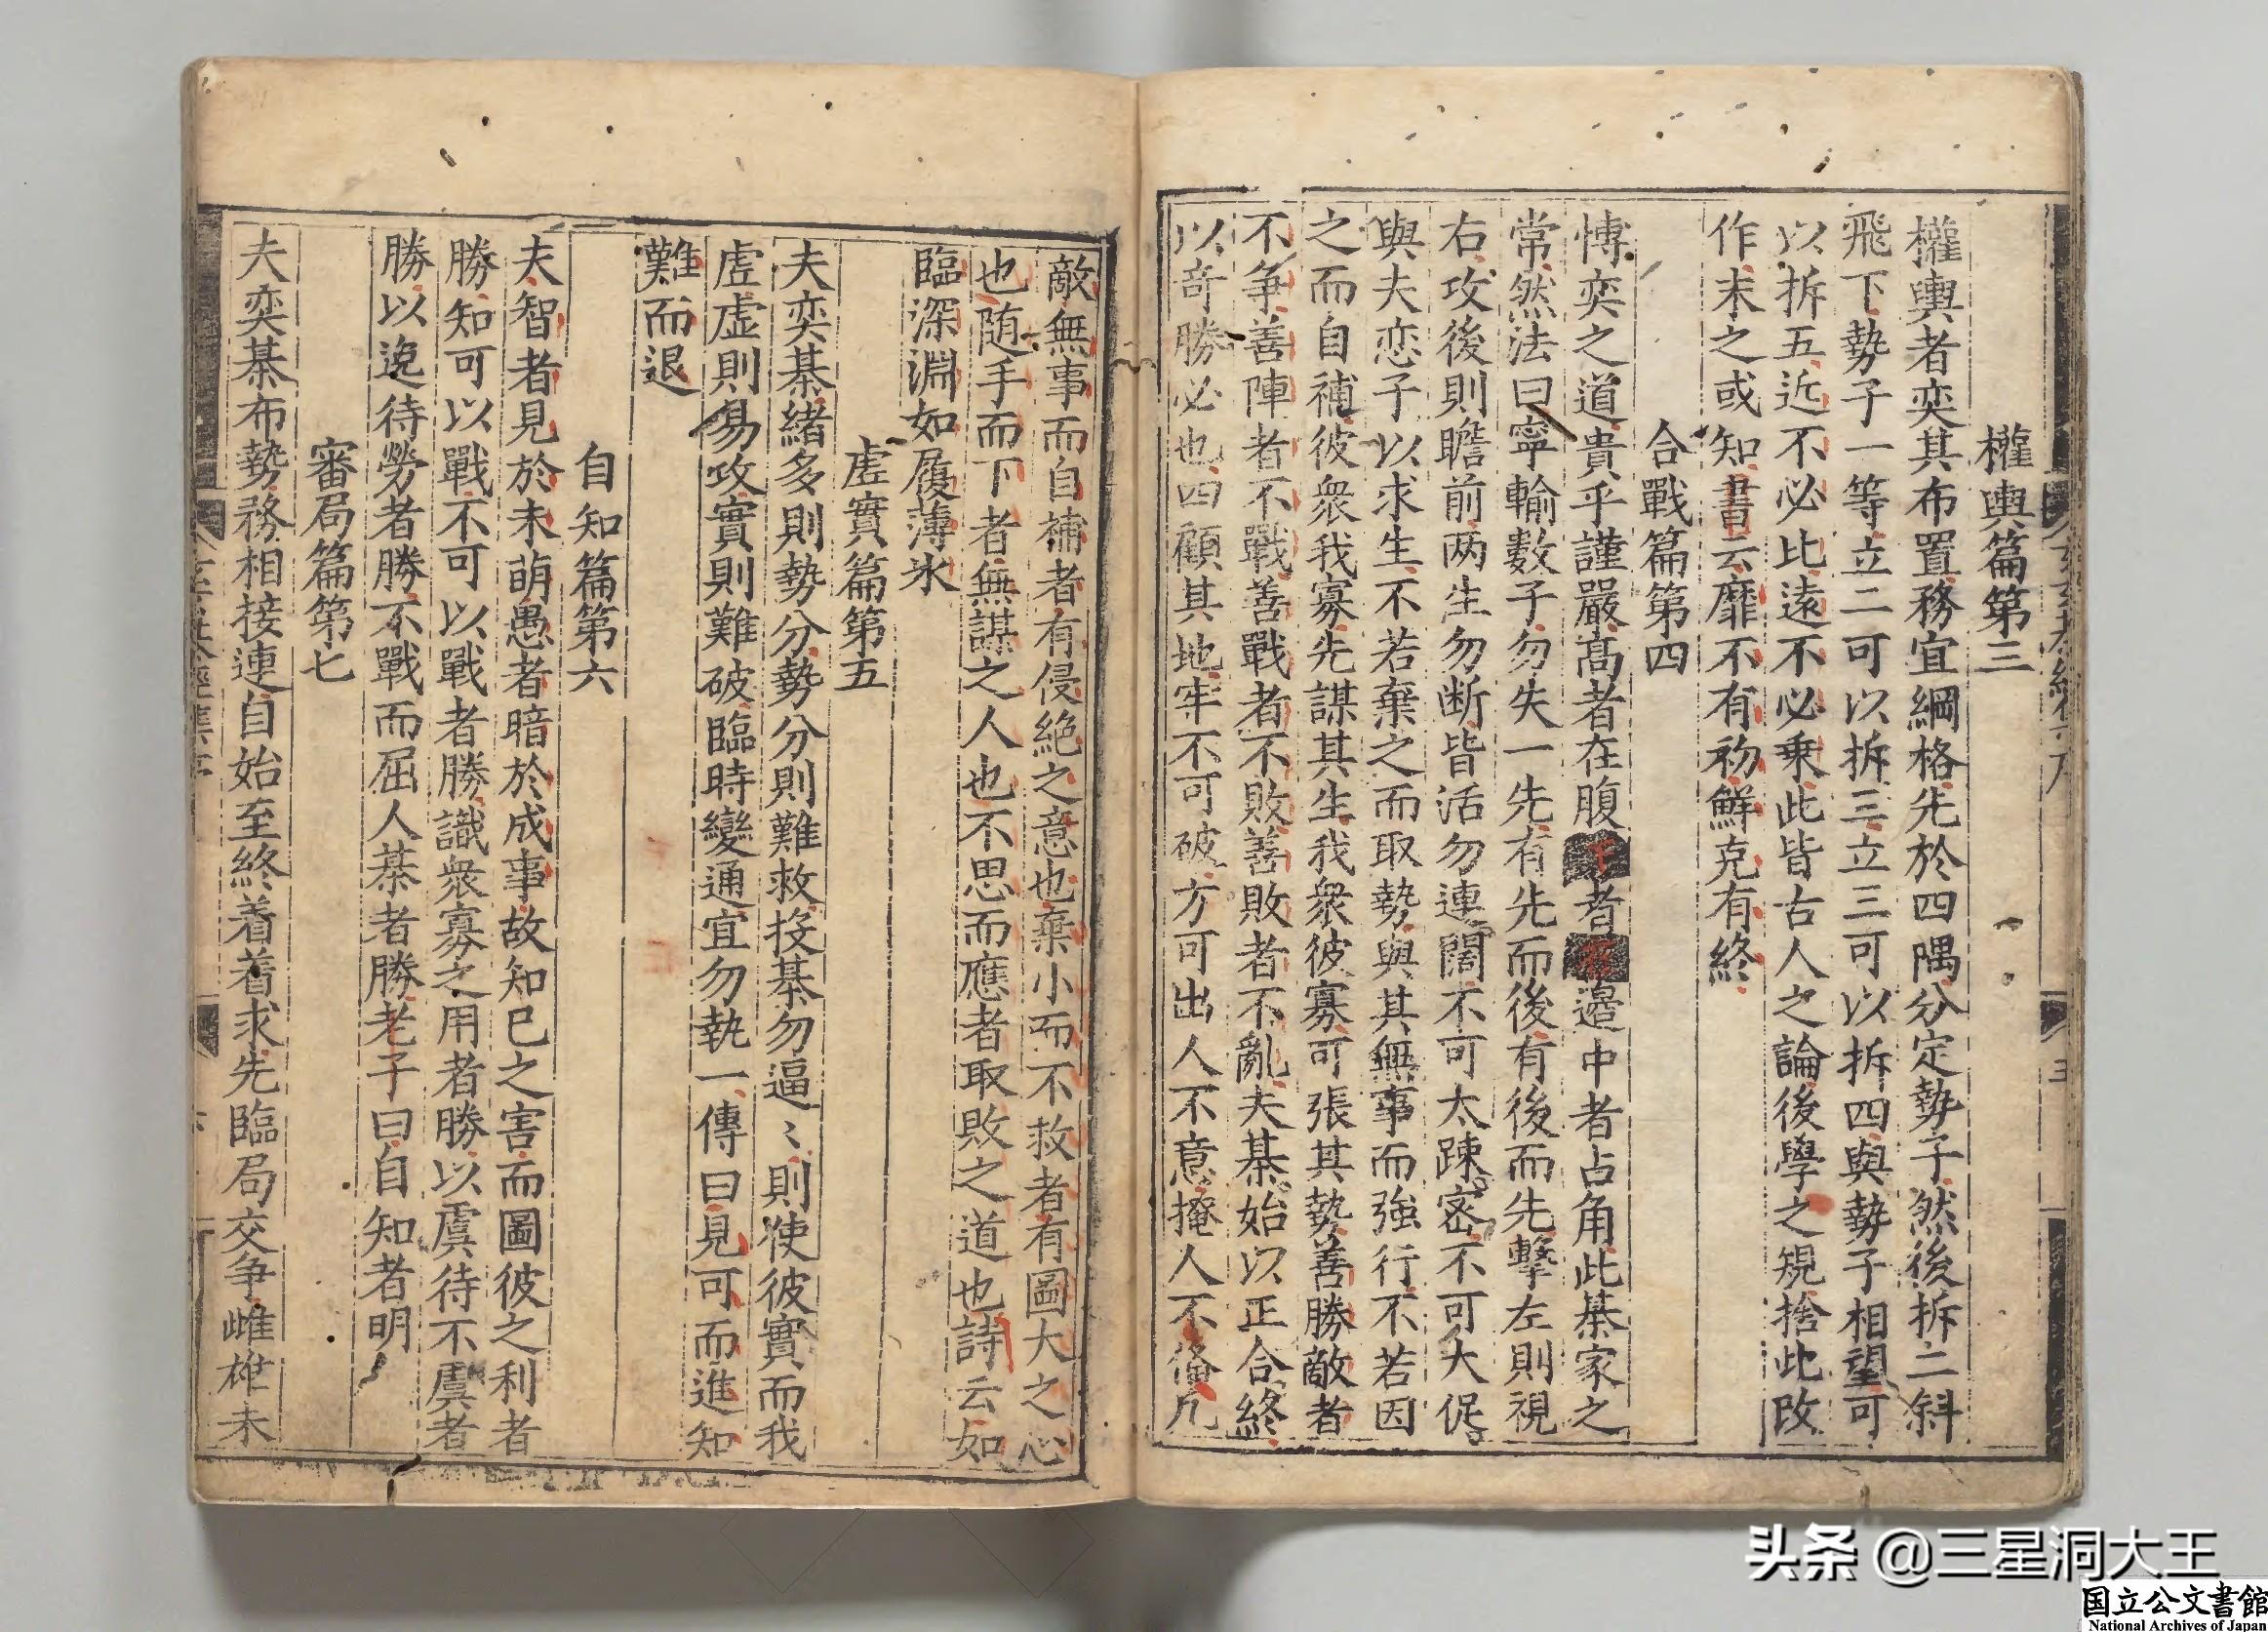 權輿篇第三
權輿者奕其布置務宜綱格先於四隅分定勢子然後拆二斜
飛下勢子一等立二可以拆三立三可以拆四與勢子相望可
以拆五近不必比遠不必乗此皆古人之論後學之規捨此改
作未之或知書云靡不有初鮮克有終
合戰篇第四
博奕之道貴乎謹嚴高者在腹下者在邉中者占角此棊家之
常然法曰寧輸數子勿失一先有先而後有後而先擊左則視
右攻後則瞻前两生勿断皆活勿連闊不可太踈密不可大促
與夫恋子以求生不若棄之而取勢與其無事而強行不若因
之而自補彼衆我寡先謀其生我衆彼寡可張其勢善勝敵者
不争善陣者不戰善戰者不敗善敗者不亂夫棊始以正合終
以竒勝必也四顧其地牢不可破方可出人不意掩人不備凡
敵無事而自補者有侵絶之意也棄小而不救者有圖大之心
也随手而下者無謀之人也不思而應者取敗之道也詩云如
臨深淵如履薄氷
虗實篇第五
夫奕棊緒多則勢分勢分則難救投棊勿逼〻則使彼實而我
虗虗則易攻實則難破臨時變通宜勿執一傳曰見可而進知
難而退
自知篇第六
夫智者見於未萌愚者暗於成事故知已之害而圖彼之利者
勝知可以戰不可以戰者勝識衆寡之用者勝以虞待不虞者
勝以逸待勞者勝不戰而屈人棊者勝老子曰自知者明
審局篇第七
夫奕棊布勢務相接連自始至終着着求先臨局交争雌雄未
头条 @三星洞大王
国立公文書館
National Archives of Japan